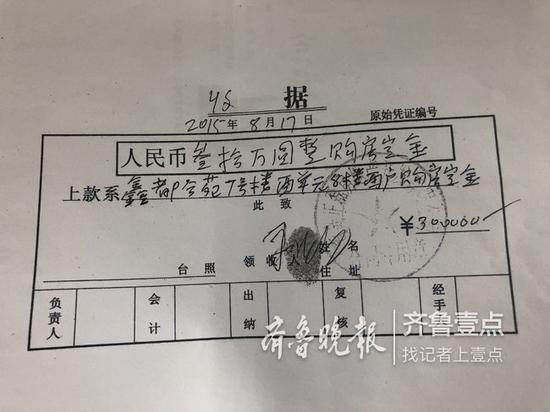 收 据
2015年8月17日 原始凭证编号
人民币叁拾万圆整购房定金
上款系鑫都公苑7号楼西单元8楼西户购房定金
此致
¥300000
台照 领收 姓名 住址
负责人 会计 出纳 复核 经手
齐鲁晚报 齐鲁壹点
找记者上壹点